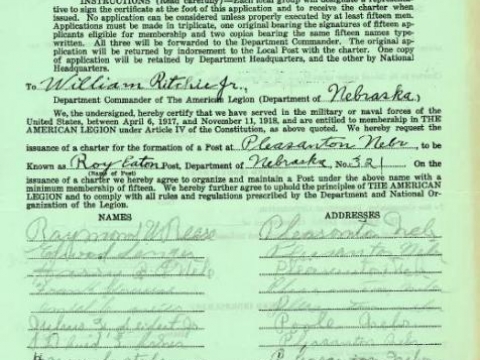 INSTRUCTIONS (Read carefully)—Each local group will designate a representa-
tive to sign the certificate at the foot of this application and to receive the charter when
issued. No application can be considered unless properly executed by at least fifteen men.
Applications must be made in triplicate, one original bearing the signatures of fifteen ap-
plicants eligible for membership and two copies bearing the same fifteen names type-
written. All three will be forwarded to the Department Commander. The original ap-
plication will be returned by indorsement to the Local Post with the charter. One copy
of application will be retained by Department Headquarters, and the other by National
Headquarters.
To William Ritchie Jr.,
Department Commander of The American Legion (Department of Nebraska)
We, the undersigned, hereby certify that we have served in the military or naval forces of the
United States, between April 6, 1917, and November 11, 1918, and are entitled to membership in THE
AMERICAN LEGION under Article IV of the Constitution, as above quoted. We hereby request the
issuance of a charter for the formation of a Post at Pleasanton Nebr, to be
Known as Roy Eaton Post, Department of Nebraska No. 321 On the
(Name of Post)
issuance of a charter we hereby agree to organize and maintain a Post under the above name with a
minimum membership of fifteen. We hereby further agree to uphold the principles of THE AMERICAN
LEGION and to comply with all rules and regulations prescribed by the Department and National Or-
ganization of the Legion.
NAMES ADDRESSES
Raymond W Pleasanton Neb
Pleasanton Neb
Pleasanton
Pleasanton Neb
Poole Nebr
Pleasanton Neb
Pleasanton Neb